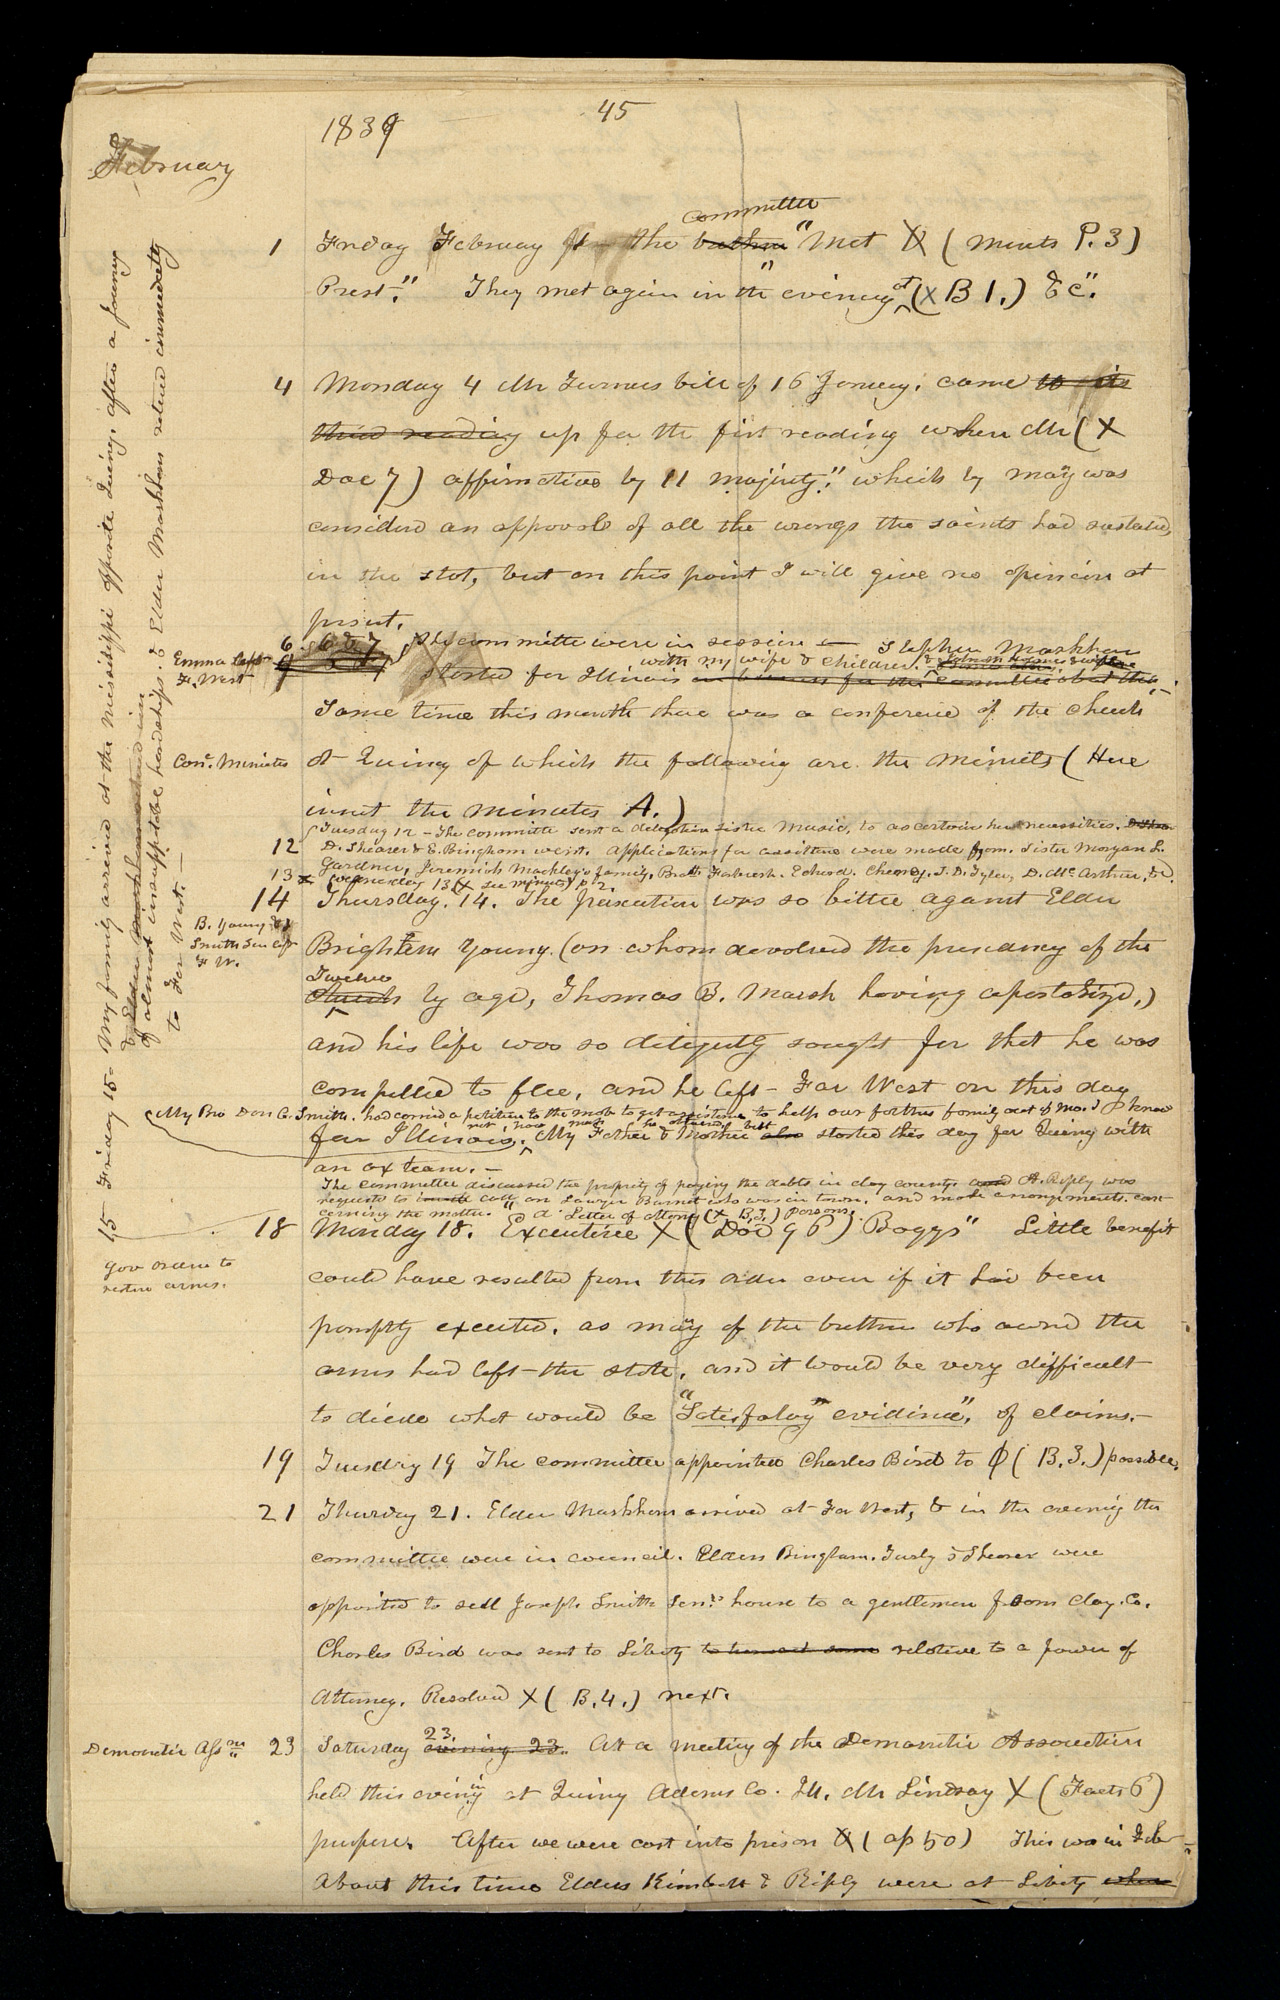 45
1839
February
committee
1 Friday February 1st — the brethren " met X (Minuts P. 3)
Prest." They met again in "the evening at (X B 1.) &c".
4 Monday 4 Mr Turners bill of 16 January, came to its
third reading up for the first reading when Mr (X
Doc 7) affirmative by 11 majority." which by many was
considerd an approval of all the wrongs the saints had sustained,
in the stat, but on this point I will give no opinion at
present.
6. 6 & 7, The committe were in session — Stephen Markham
Emma left
F. West
with my wife & children. &
started for Illinois on business for the committee about this
Some time this month there was a conference of the church
Con. Minutes at Quincy of which the following are the minuets (Here
insert the minutes A.)
Tuesday 12 – The committe sent a delegation sister Music, to ascertain her necessities.
12 D. Shearer & E. Bingham went. Applications for assistnce were made from. Sister Morgan L.
Gardner, Jeremiah Mackley's family, Broth Forbush. Edwd. Cheney, T. D. Tyler, D. McArthur, &c.
13 Wednesday 13 (X see minuts) P 2.
14 Thursday. 14. The persecution was so bitter against Elder
B. Young &
Smith Sen left
F W.
Brigham Young. (on whom devolved the presidency of the
Twelve
church by age, Thomas B. Marsh having apostatized,)
and his life was so diligently sought for that he was
compelled to flee, and he left Far West on this day
My Bro Don C. Smith. had carried a petition to the mob to get assistance to help our fathers family out of Mo. I know
not how much he obtained, but
for Illinois. My Father & Mother also started this day for Quincy with
an ox team. —
The committee discussed the propriety of paying the debts in clay county and A. Ripley was
requested to call on Lawyer Barnet who was in town, and make arrangements con-
cerning the matter. " A Letter of attorney (X B, 2,) persons.
18 Monday 18. Executive X (Doc 96) Boggs" Little benefit
Gov orders to
restore arms.
could have resulted from this order even if it had been
promptly executed, as many of the brethren who owned the
arms had left the state, and it would be very difficult
to decide what would be "Satisfactory evidence", of claims.—
19 Tuesday 19 The committee appointed Charles Bird to (B. 3.) possible.
21 Thursday 21. Elder Markham arrived at Far West, & in the evening the
committee were in council. Elders Bingham. Turly & Shearer were
appointed to sell Joseph Smith Senrs house to a gentlemen from Clay. Co.
Charles Bird was sent to Liberty to transact some relative to a power of
Attorney. Resolved X (B. 4.) next.
Democratic Assn 23 Saturday evening 23. 23. At a meeting of the Democratic Association
held this evening at Quincy Adams Co. Ill. Mr Lindsay X (Facts 6)
purpose. After we were cast into prison X (ap 50) This was in Feb
About this time Elders Kimball & Ripley were at Liberty when
15 Friday 15 My family arrived at the Mississippi opposite Quincy, after a journey
of almost insupportable hardships & Elder Markham returned immediately
to Far West. —